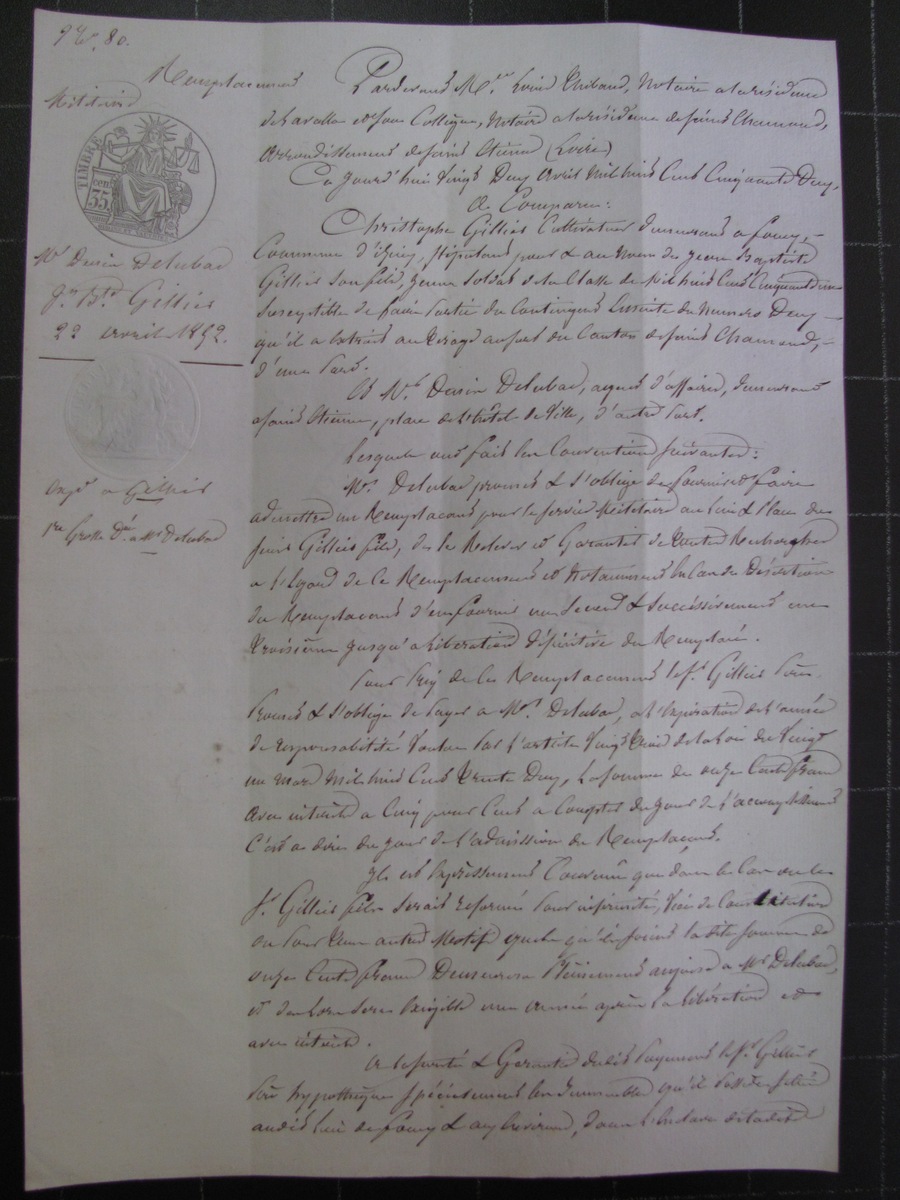 N.º 80.
Remplacement
Militaire
TIMBRE
35 cent
Mr Devin Delubac
Jn Bte Gillier
22 avril 1852.
Expé a Gillier
1re Grosse dée a Mr Delubac
Pardevant Me Louis Thibaud, Notaire a la résidence
de Lavalla et son Collègue, Notaire a la résidence de saint Chamond,
arrondissement de saint Etienne (Loire)
Ce jourd'hui vingt Deux avril mil huit Cent Cinquante Deux,
A Comparu:
Christophe Gillier Cultivateur demeurant a
Commune d'Izieux, stipulant pour & au nom de Jean Baptiste
Gillier son fils, jeune soldat de la Classe de mil huit Cent Cinquante un
susceptible de faire partie du Contingent ensuite du numéro Deux
qu'il a extrait au tirage au sort du Canton de saint Chamond,
d'une part.
Et Mr Devin Delubac, agent d'affaires, demeurant
a saint Etienne, place de l'hôtel de Ville, d'autre part.
Lesquels ont fait les Conventions suivantes:
Mr Delubac promet & s'oblige de fournir et faire
admettre un Remplaçant pour le service Militaire au lieu & place du
sieur Gillier fils, de le Relever et Garantir de toutes Recherches
a l'égard de ce Remplacement et notamment en Cas de Désertion
du Remplaçant d'en fournir un second & successivement un
troisième jusqu'a libération définitive du Remplacé.
Pour Prix de ce Remplacement le sr Gillier père
Promet & s'oblige de Payer a Mr Delubac, a l'expiration de l'année
de responsabilité voulue par l'article vingt trois de la loi du vingt
un mars mil huit Cent trente Deux, la somme de onze Cents francs
avec intérêts a Cinq pour Cent a Compter du jour de l'accomplissement
C'est a dire du jour de l'admission du Remplaçant.
Il est expressément Convenu que dans le Cas ou le
sr Gillier fils serait réformé pour infirmité, vice de Constitution
ou pour tout autre Motif quel qu'il soit la dite somme de
onze Cents francs Demeurera pleinement acquise a Mr Delubac,
et de lors sera exigible une année après la libération et
avec intérêts.
A la sureté & Garantie dudit Payement le sr Gillier
père hypothèque spécialement les immeubles qu'il possède
audit lieu de & aux environs, dans l'enclave de ladite